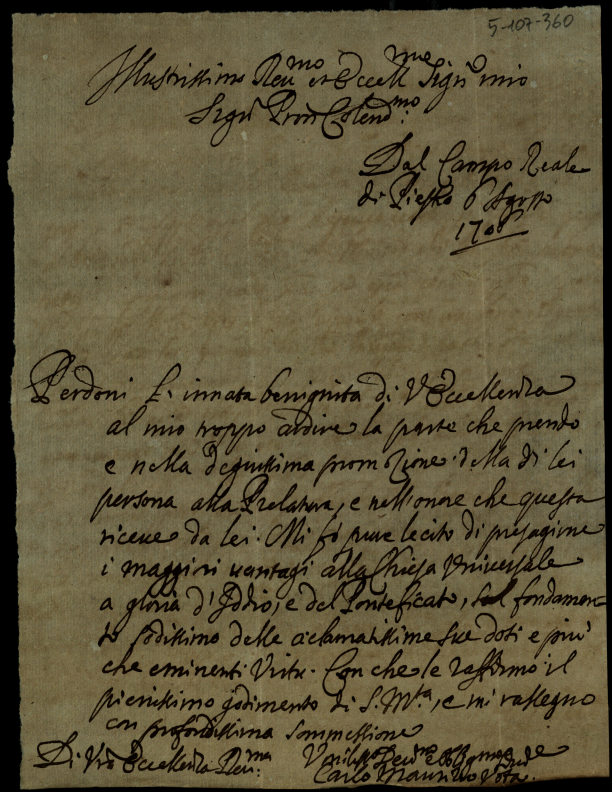 5-107-360
Illustrissimo Reu.mo et Eccell.mo Sig.r mio
Sig.r Pron Colend.mo
Dal Campo Reale
di 6 Agosto
170
Perdoni l'innata benignita di V Eccellenza
al mio troppo ardire la parte che prendo
e nella degnissima promozione della di lei
persona alla Prelatura, e nell'onore che questa
riceue da lei. Mi fo pure lecito di presagirne
i maggiori uantagi alla Chiesa Vniuersale
a gloria d'Iddio, e del Pontificato, sul fondamen
to sodissimo delle aclamatissime sue doti e piu
che eminenti Virtu. Con che le raffermo il
pienissimo godimento di S. M.ta, e mi rassegno
con profondissima sommessione
Di Vra Eccellenza Reu.ma Vmiliss Deu.mo
Carlo Maurizio Vota